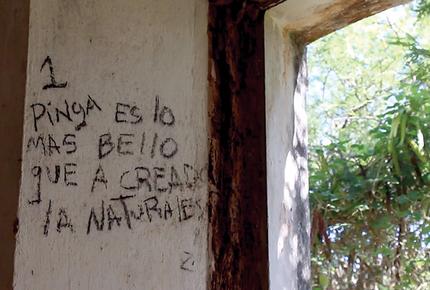 1
PiNgA ES lo
MAS BEllO
qUE A CREADO
lA NATURALES
2